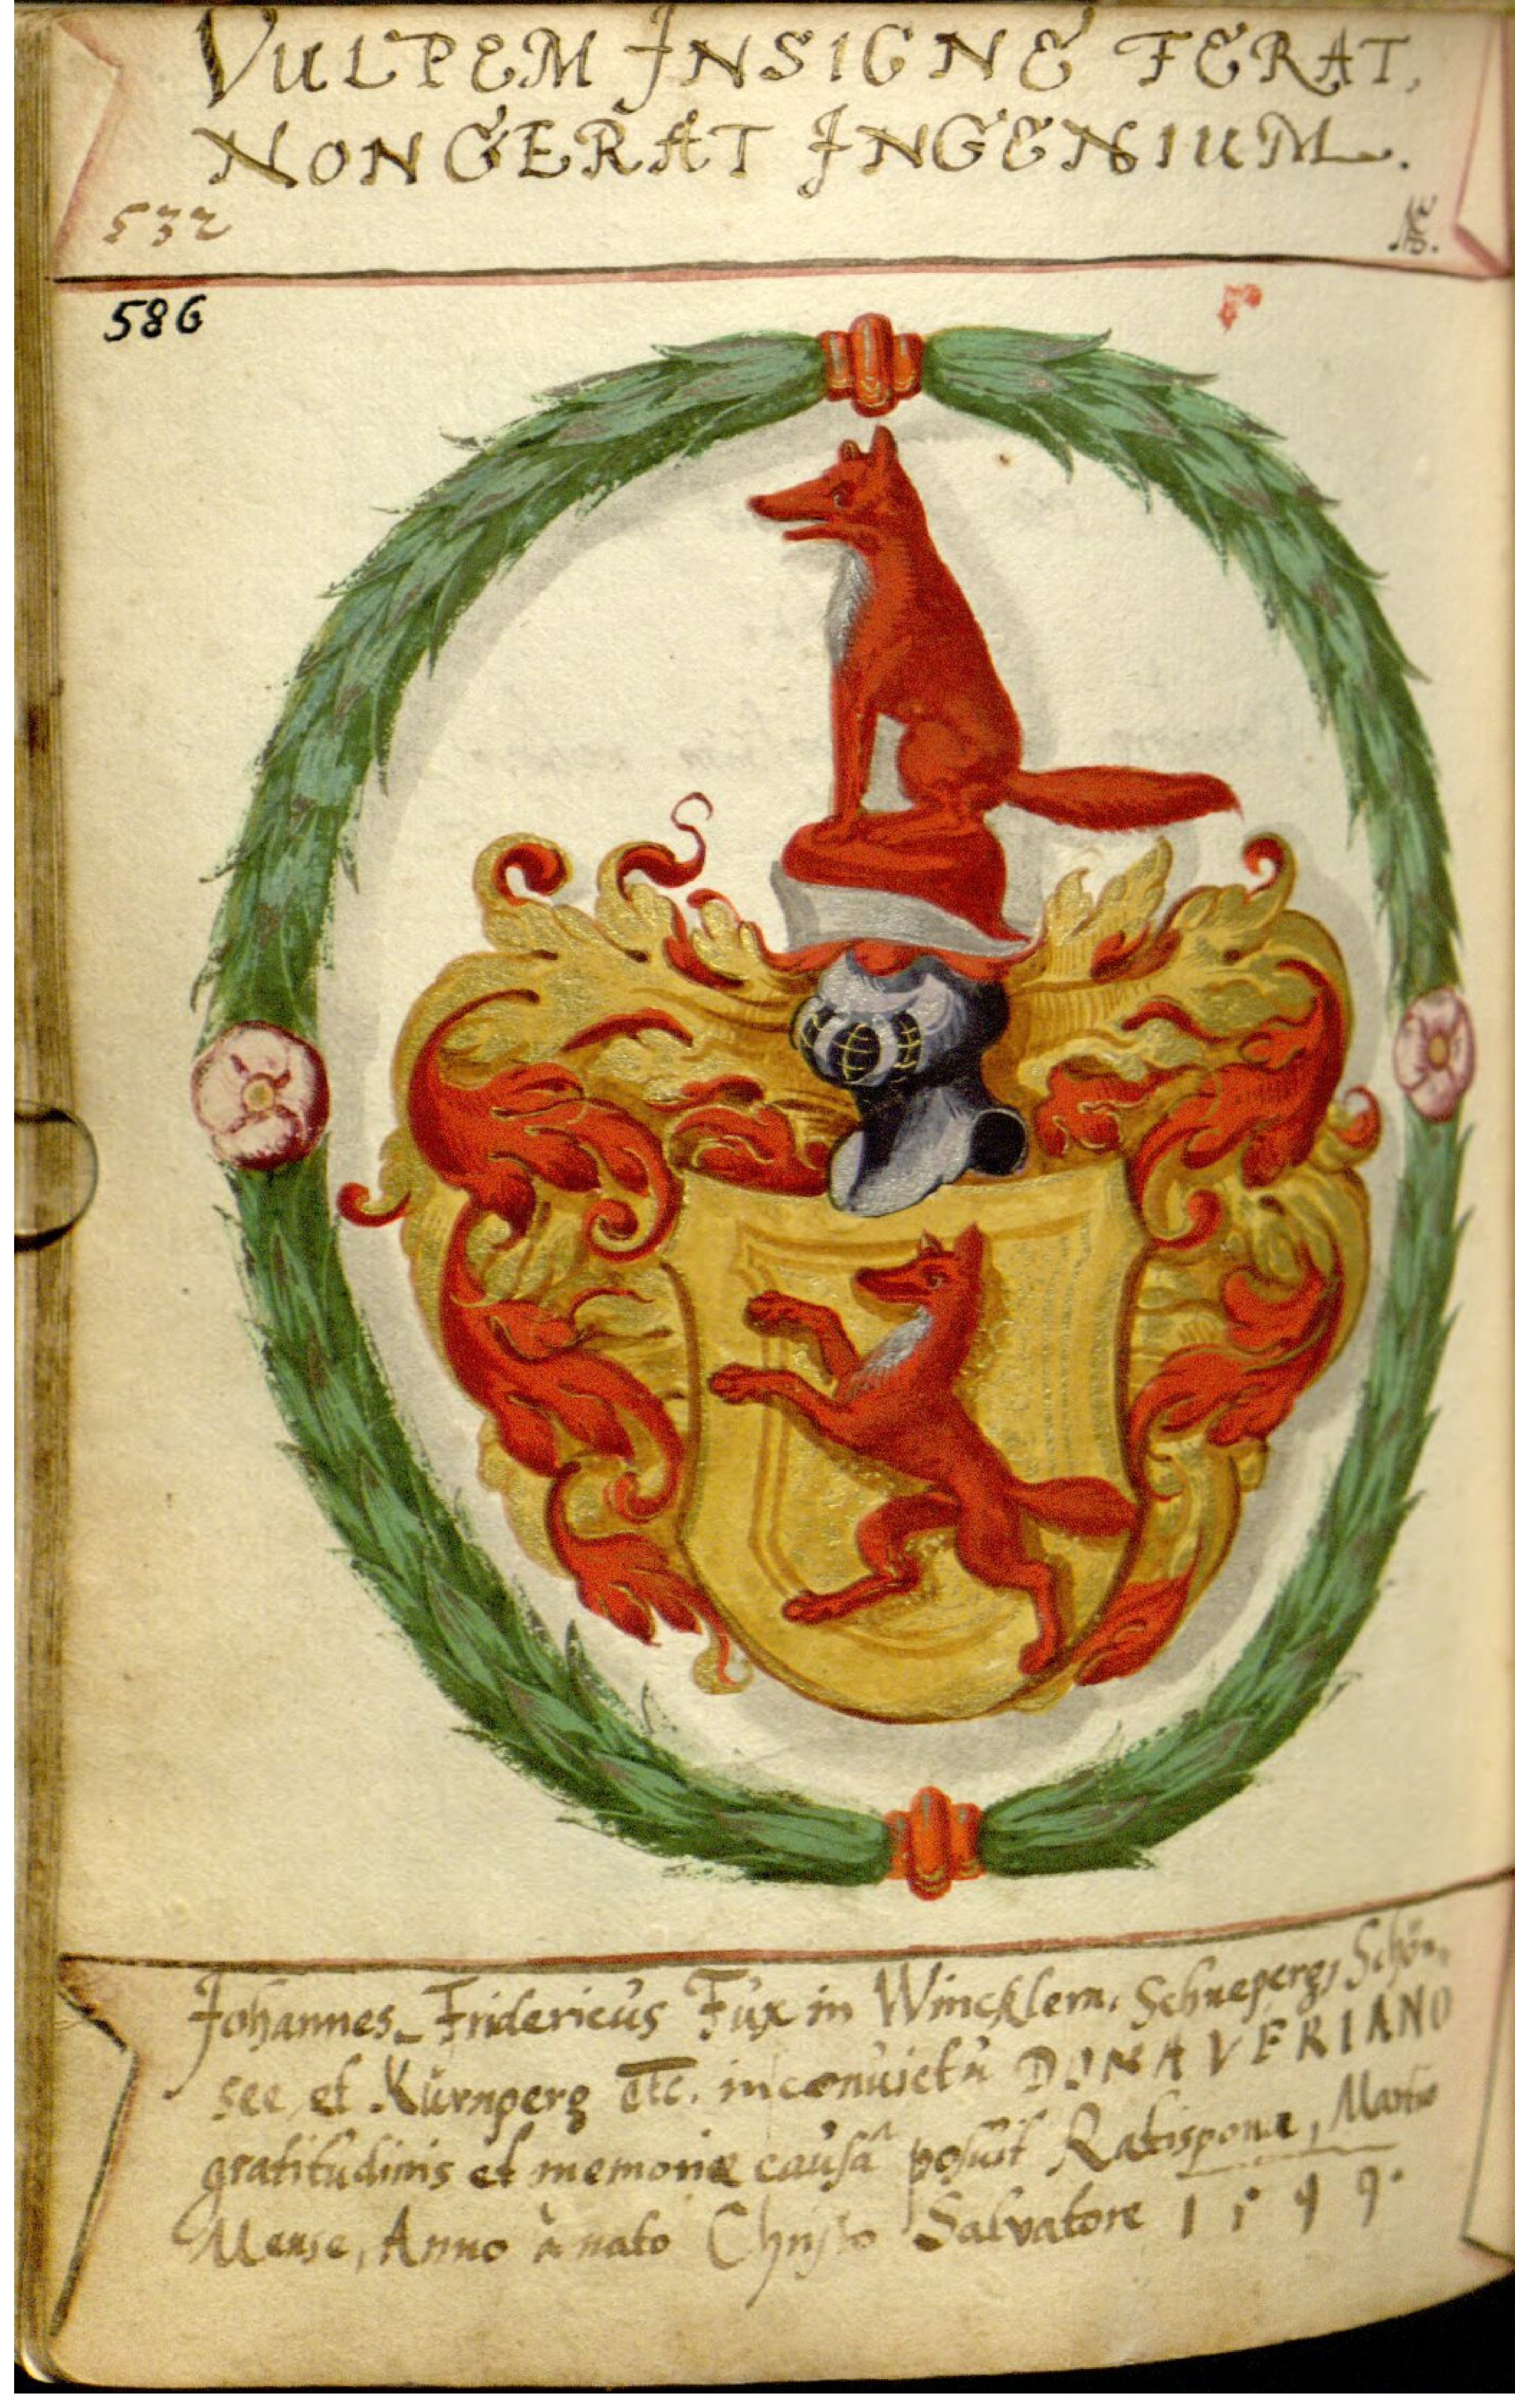 VULPEM INSIGNE FERAT,
NON GERAT INGENIUM.
532
586
Johannes Fridericus Fux in Wincklern, Schneperg, Schön„
see et Nürnperg etc. in conuictu DONAVERIANO
gratitudinis et memoriæ causâ posuit Ratisponæ, Martio
Mense, Anno à nato Christo Salvatore 1599.